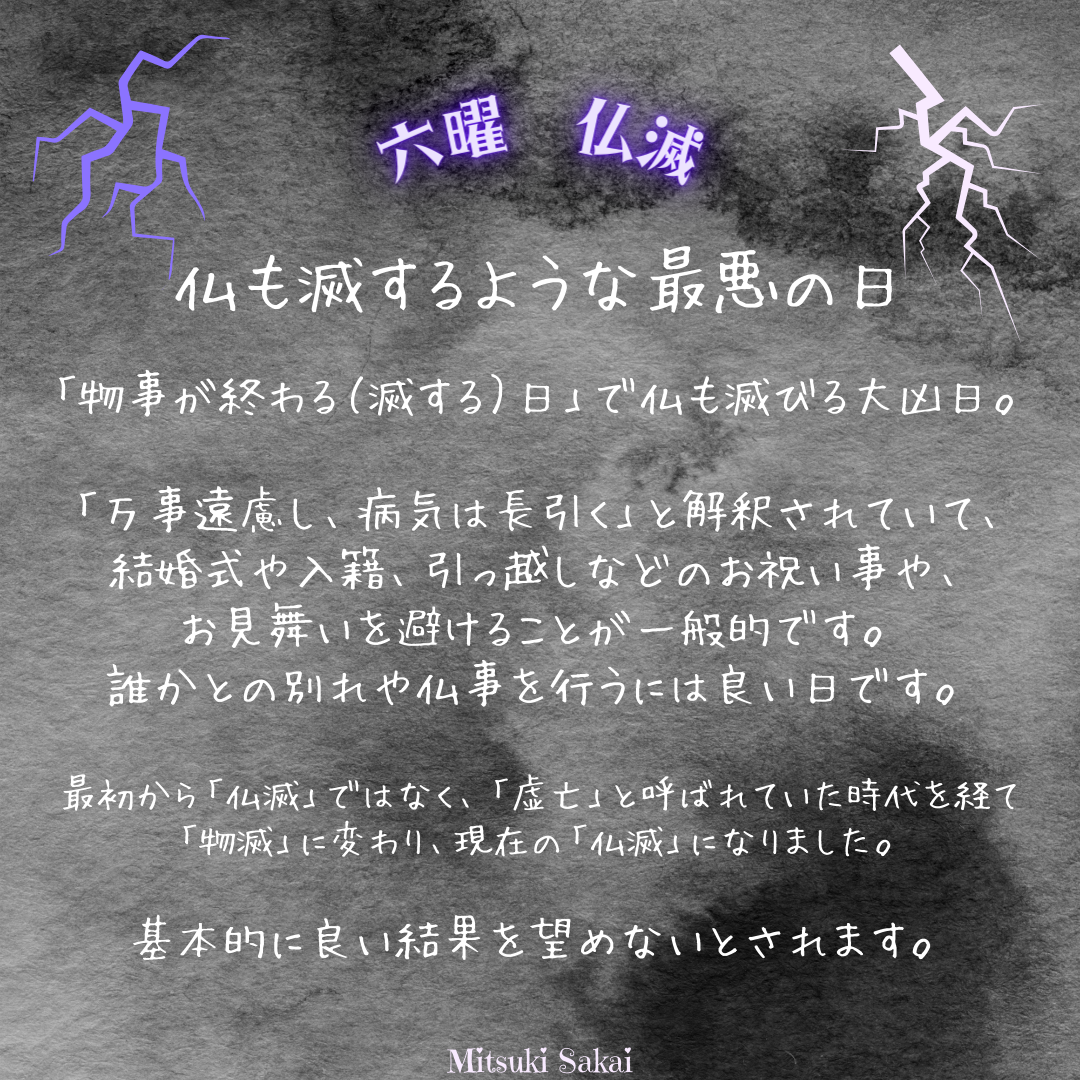 六曜 仏滅
仏も滅するような最悪の日
「物事が終わる(滅する)日」で仏も滅びる大凶日。
「万事遠慮し、病気は長引く」と解釈されていて、
結婚式や入籍、引っ越しなどのお祝い事や、
お見舞いを避けることが一般的です。
誰かとの別れや仏事を行うには良い日です。
最初から「仏滅」ではなく、「虚亡」と呼ばれていた時代を経て
「物滅」に変わり、現在の「仏滅」になりました。
基本的に良い結果を望めないとされます。
Mitsuki Sakai